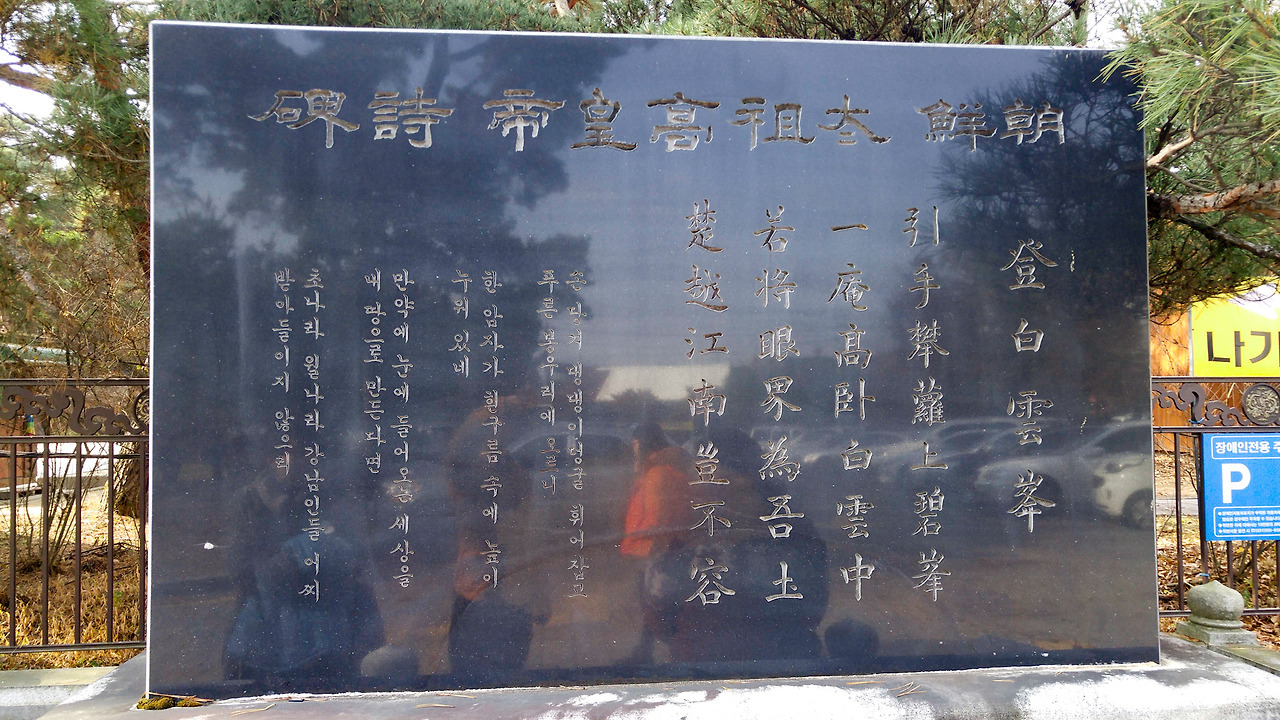 朝鮮 太祖高皇帝 詩碑
登白雲峯
引手攀蘿上碧峯
一庵高臥白雲中
若將眼界為吾土
楚越江南豈不容
손 당겨 댕댕이넝쿨 휘어잡고
푸른 봉우리에 오르니
한 암자가 흰구름 속에 높이
누워 있네
만약에 눈에 들어오는 세상을
내 땅으로 만든다면
초나라 월나라 강남인들 어찌
받아들이지 않으리
나가
장애인전용 주
P